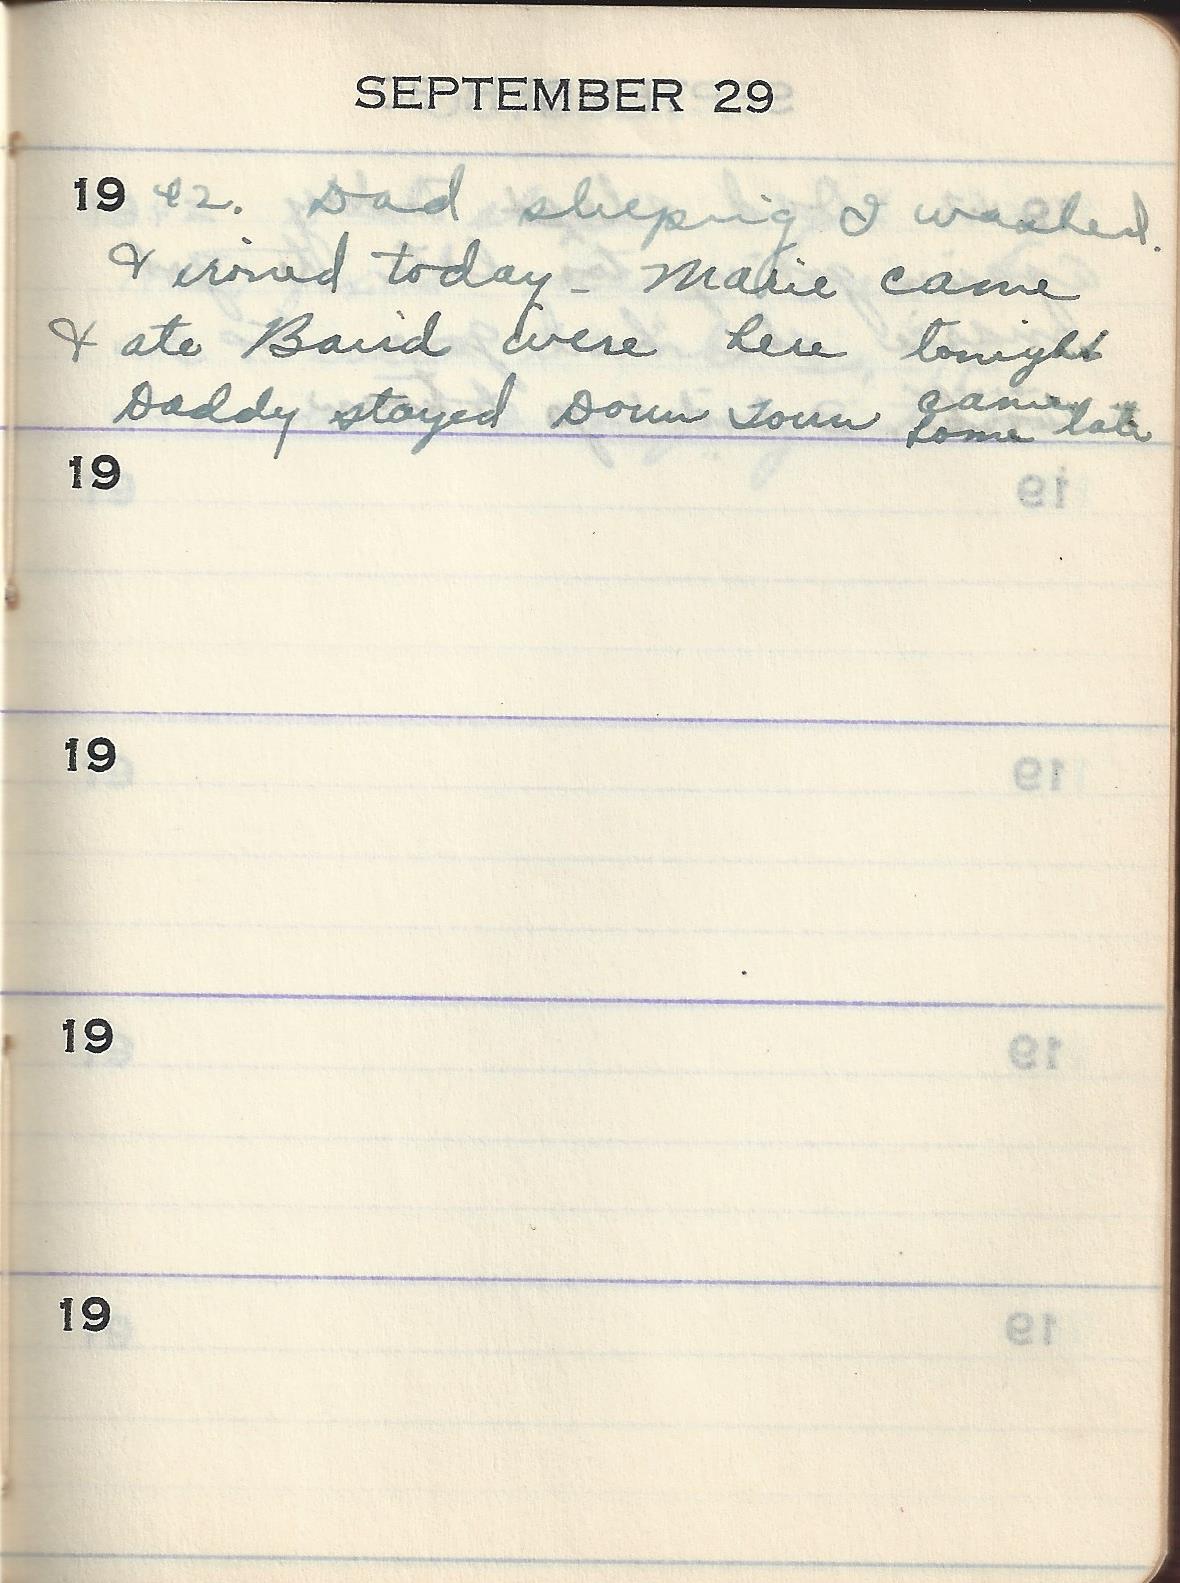 SEPTEMBER 29
19 42. Dad sleeping I washed.
& ironed today - Marie came
& ate Baird were here tonight
Daddy stayed Down Town came home late
19
19
19
19